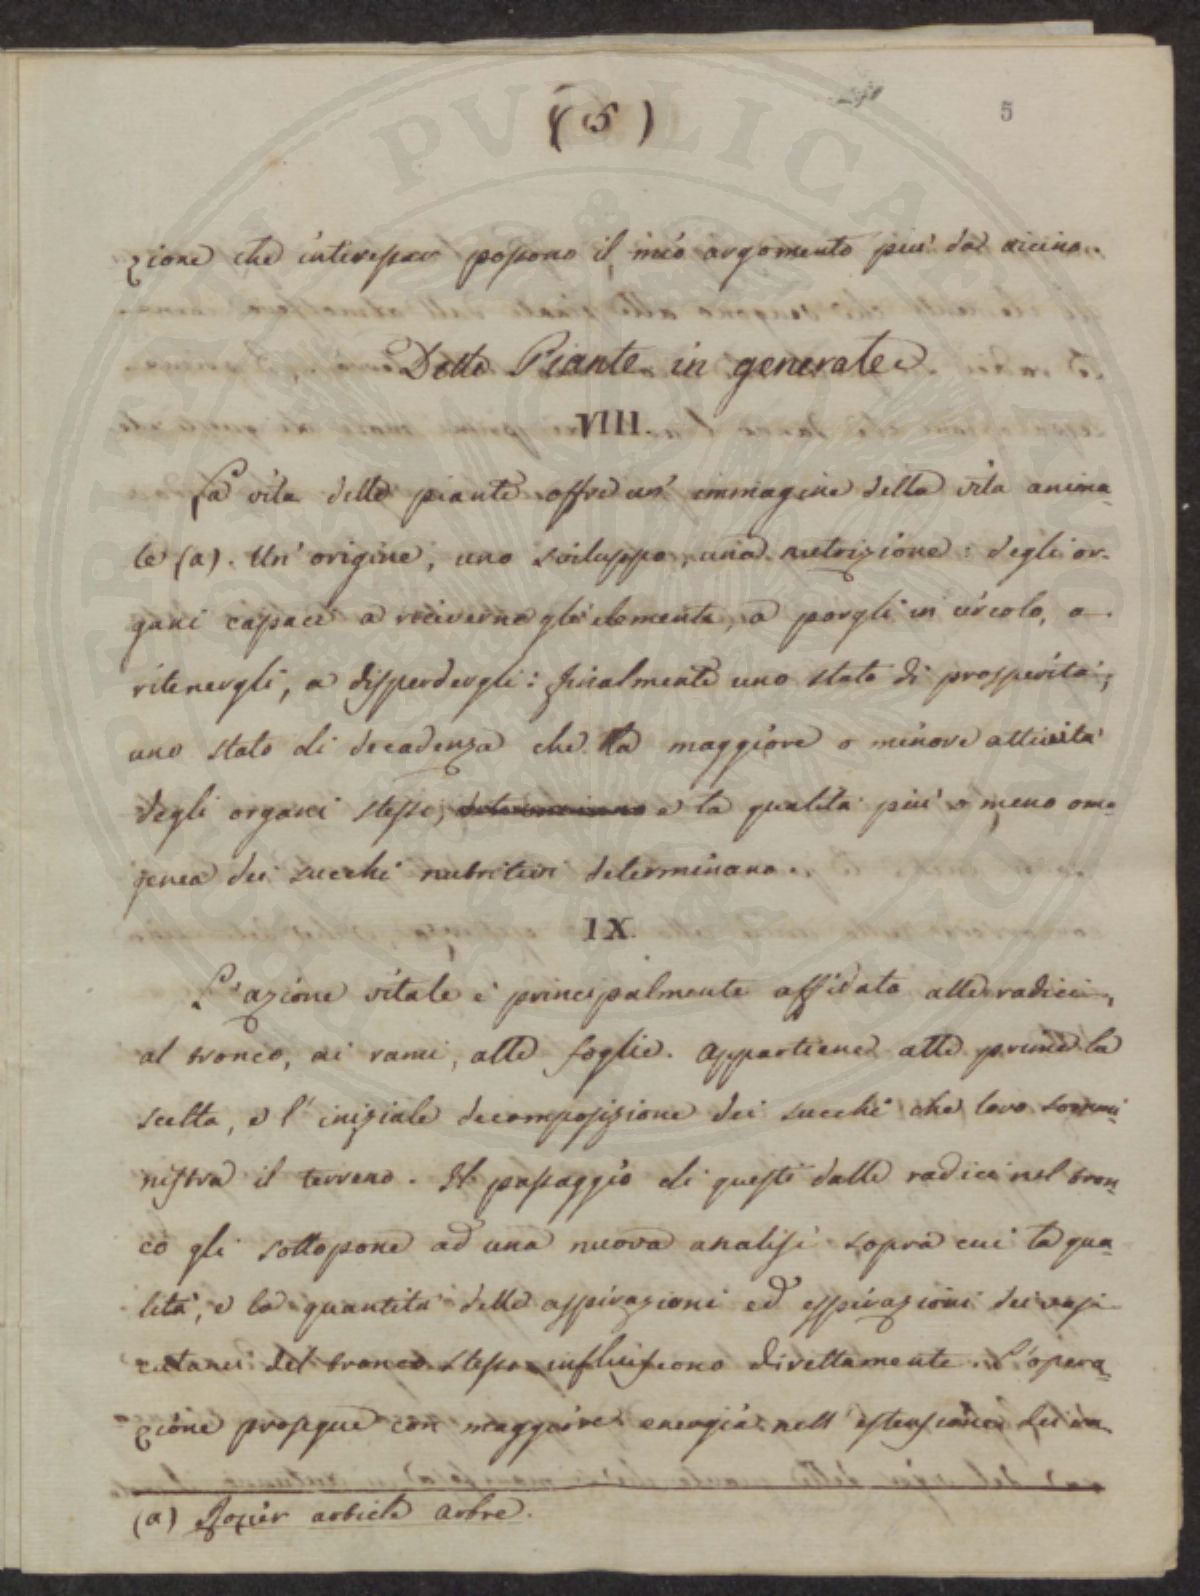 (5)
5
zione che interessar possono il mio argomento piu' da vicino.
Delle Piante in generale
VIII.
La vita delle piante offre un' immagine della vita anima-
le (a). Un' origine, uno sviluppo, una nutrizione: degli or-
gani capaci a riceverne gli elementi, a porgli in circolo, a
ritenergli, a disperdergli: finalmente uno stato di prosperità,
uno stato di decadenza che la maggiore o minore attività
degli organi stessi, determinano e la qualità piu' o meno omo-
genea dei succhi nutritivi determinano.
IX.
L'azione vitale è principalmente affidata alle radici,
al tronco, ai rami, alle foglie. Appartiene alle prime la
scelta, e l' iniziale decomposizione dei succhi che loro sommi-
nistra il terreno. Il passaggio di questi dalle radici nel tron-
co gli sottopone ad una nuova analisi sopra cui la qua-
lità, e la quantità delle aspirazioni ed espirazioni dei vasi
cutanei del tronco stesso influiscono direttamente. L'opera-
zione prosegue con maggiore energia nell' estensione dei ra-
(a) Rozier article arbre.
PVBLICAE